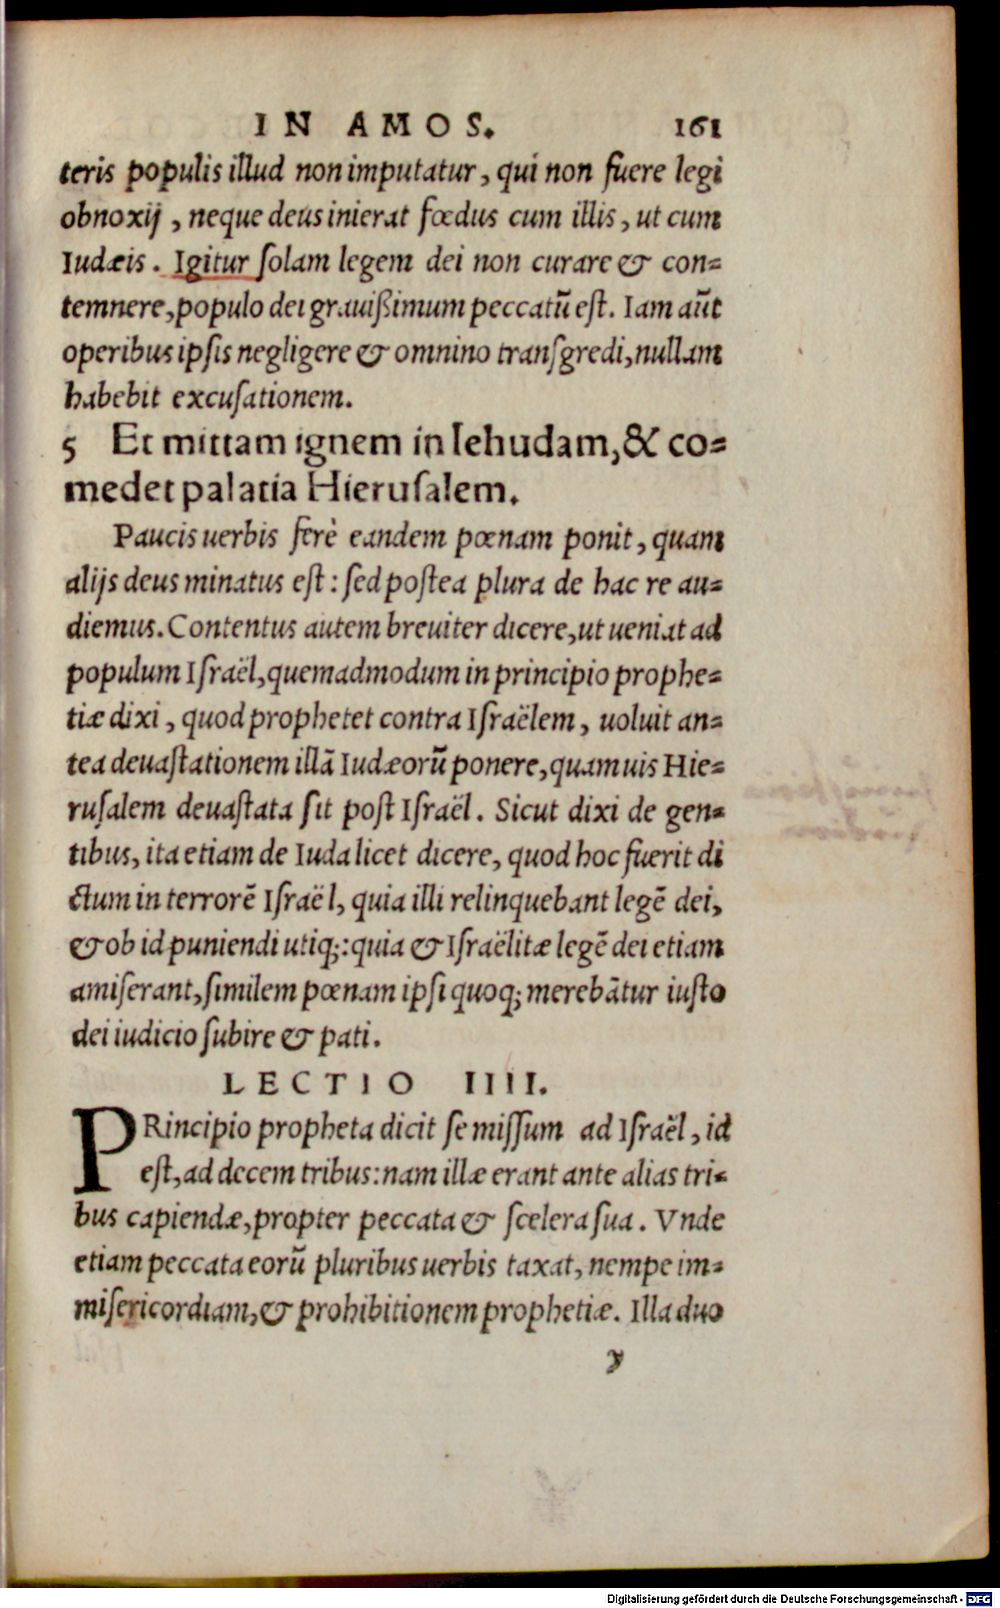 IN AMOS. 161
teris populis illud non imputatur, qui non fuere legi
obnoxij, neque deus inierat fœdus cum illis, ut cum
Iudæis. Igitur ſolam legem dei non curare & con=
temnere, populo dei grauißimum peccatũ eſt. Iam aũt
operibus ipſis negligere & omnino tranſgredi, nullam
habebit excuſationem.
5 Et mittam ignem in Iehudam, & co=
medet palatia Hieruſalem.
Paucis uerbis ferè eandem pœnam ponit, quam
alijs deus minatus eſt: ſed poſtea plura de hac re au=
diemus. Contentus autem breuiter dicere, ut ueniat ad
populum Iſraël, quemadmodum in principio prophe=
tiæ dixi, quod prophetet contra Iſraëlem, uoluit an=
tea deuaſtationem illã Iudæorũ ponere, quamuis Hie=
ruſalem deuaſtata ſit poſt Iſraël. Sicut dixi de gen=
tibus, ita etiam de Iuda licet dicere, quod hoc fuerit di
ctum in terrorẽ Iſraël, quia illi relinquebant legẽ dei,
& ob id puniendi utiq;: quia & Iſraëlitæ legẽ dei etiam
amiſerant, ſimilem pœnam ipſi quoq; merebãtur iuſto
dei iudicio ſubire & pati.
LECTIO IIII.
PRincipio propheta dicit ſe miſſum ad Iſraël, id
eſt, ad decem tribus: nam illæ erant ante alias tri=
bus capiendæ, propter peccata & ſcelera ſua. Vnde
etiam peccata eorũ pluribus uerbis taxat, nempe im=
miſericordiam, & prohibitionem prophetiæ. Illa duo
y
Digitalisierung gefördert durch die Deutsche Forschungsgemeinschaft - DFG